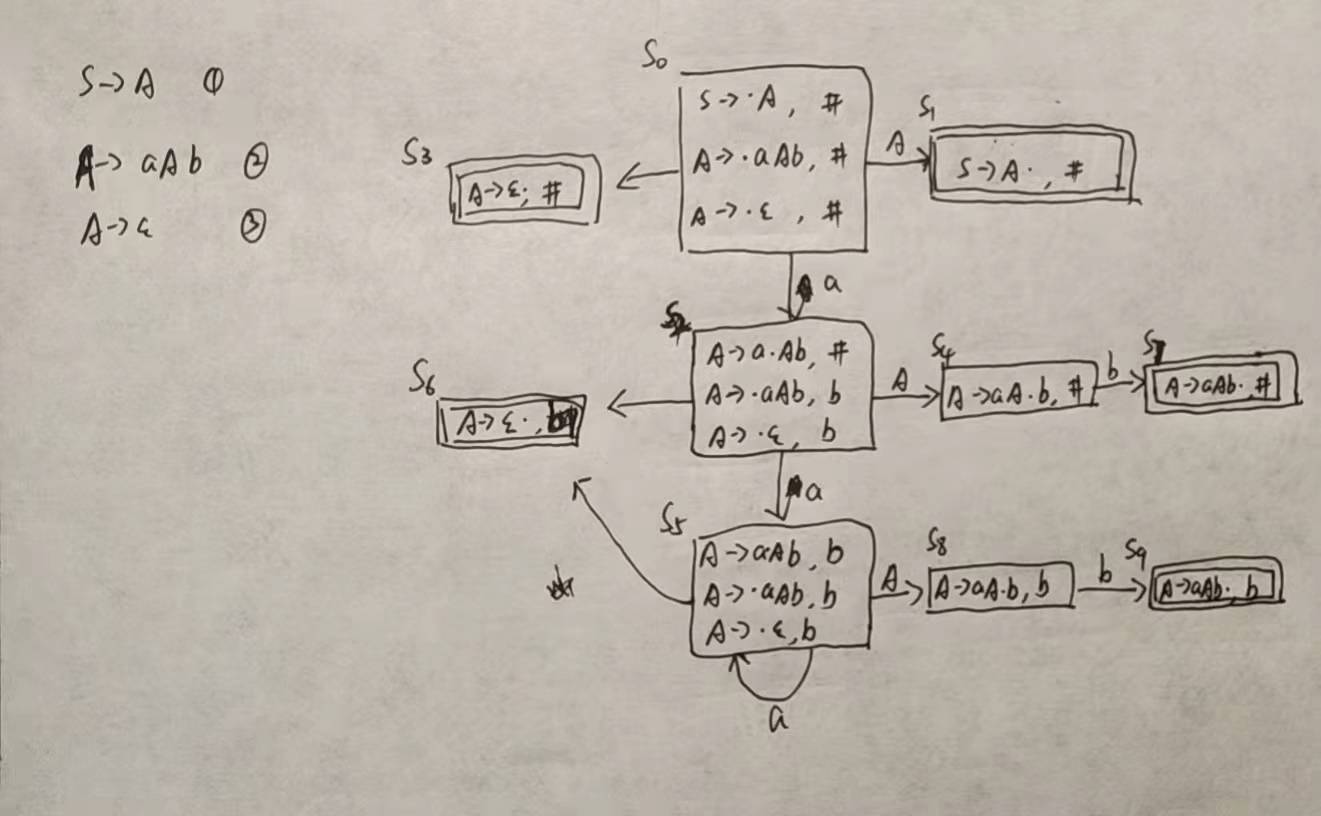 S→A ①
A→ aAb ②
A→ε ③
S0
S→·A, #
A→·aAb, #
A→·ε, #
A
S1
S→A·, #
S3
A→ε·, #
a
A→a·Ab, #
A→·aAb, b
A→·ε, b
A
S4
A→aA·b, #
b
S7
A→aAb·, #
S6
A→ε·, b
a
S5
A→aAb, b
A→·aAb, b
A→·ε, b
A
S8
A→aA·b, b
b
S9
A→aAb·, b
a